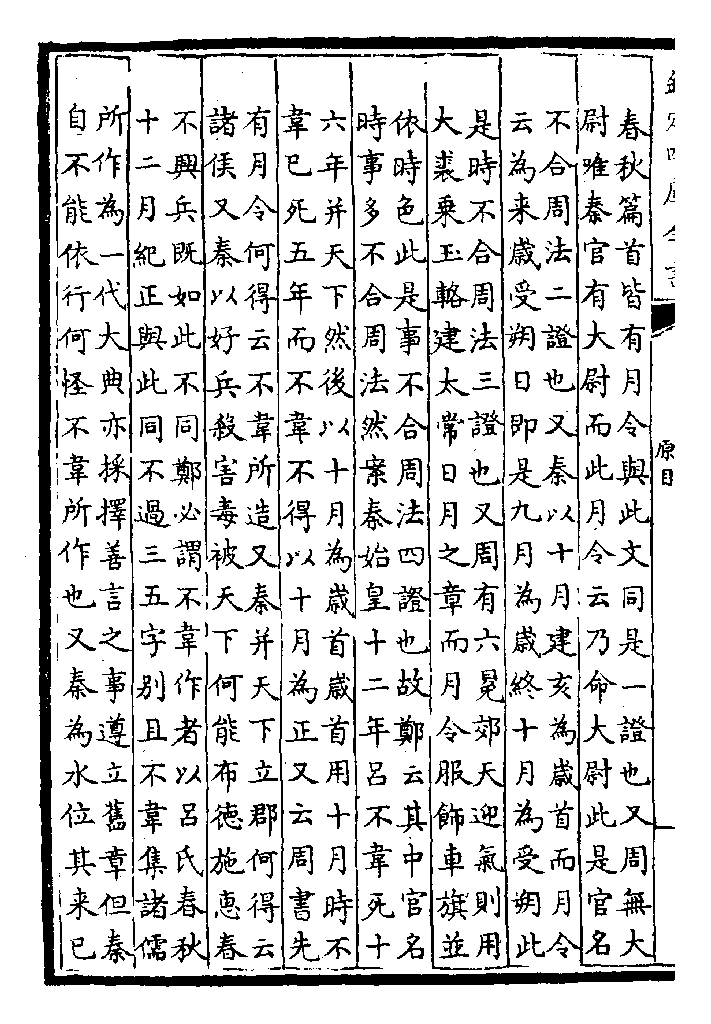 欽定四庫全書
原目
春秋篇首皆有月令與此文同是一證也又周無大
尉唯秦官有大尉而此月令云乃命大尉此是官名
不合周法二證也又秦以十月建亥為歲首而月令
云為来歲受朔日即是九月為歲終十月為受朔此
是時不合周法三證也又周有六冕郊天迎氣則用
大裘乗玉輅建太常日月之章而月令服飾車旗並
依時色此是事不合周法四證也故鄭云其中官名
時事多不合周法然案秦始皇十二年呂不韋死十
六年并天下然後以十月為歲首歲首用十月時不
韋已死五年而不韋不得以十月為正又云周書先
有月令何得云不韋所造又秦并天下立郡何得云
諸侯又秦以好兵殺害毒被天下何能布徳施恵春
不興兵既如此不同鄭必謂不韋作者以呂氏春秋
十二月紀正與此同不過三五字别且不韋集諸儒
所作為一代大典亦採擇善言之事遵立舊章但秦
自不能依行何怪不韋所作也又秦為水位其来已